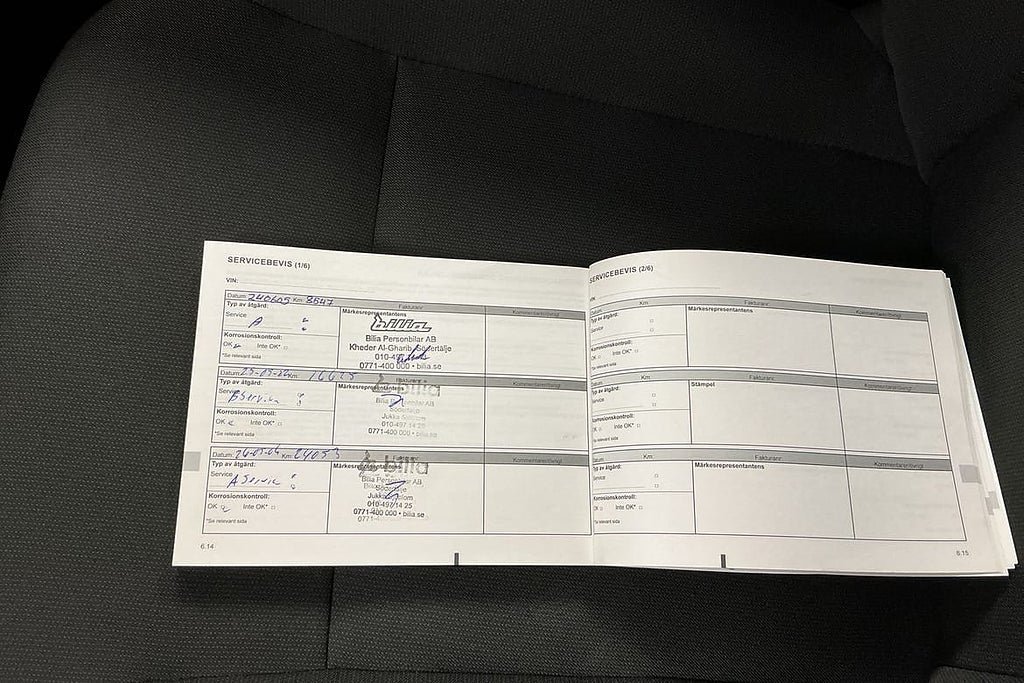 SERVICEBEVIS (1/6)
VIN:
Datum: 240605 Km: 8547 Fakturanr:
Typ av åtgärd: Märkesrepresentantens Kommentar/övrigt
Service A
bilia
Bilia Personbilar AB
Korrosionskontroll: Kheder Al-Gharib, Södertälje
OK Inte OK* 010-497
*Se relevant sida 0771-400 000 • bilia.se
Datum: Km: Fakturanr:
Typ av åtgärd: Märkesrepresentantens Kommentar/övrigt
Service B Service
bilia
Bilia Personbilar AB
Södertälje
Korrosionskontroll: Jukka Salom
OK Inte OK* 010-497 14 25
*Se relevant sida 0771-400 000 • bilia.se
Datum: Km: 24053
Typ av åtgärd: Märkesrepresentantens Kommentar/övrigt
Service A Service
bilia
Bilia Personbilar AB
Södertälje
Korrosionskontroll: Jukka Salom
OK Inte OK* 010-497 14 25
*Se relevant sida 0771-400 000 • bilia.se
6.14
SERVICEBEVIS (2/6)
VIN:
Datum: Km: Fakturanr:
Typ av åtgärd: Märkesrepresentantens Kommentar/övrigt
Service
Korrosionskontroll:
OK Inte OK*
*Se relevant sida
Datum: Km: Fakturanr:
Typ av åtgärd: Stämpel Kommentar/övrigt
Service
Korrosionskontroll:
OK Inte OK*
*Se relevant sida
Datum: Km: Fakturanr:
Typ av åtgärd: Märkesrepresentantens Kommentar/övrigt
Service
Korrosionskontroll:
OK Inte OK*
*Se relevant sida
6.15